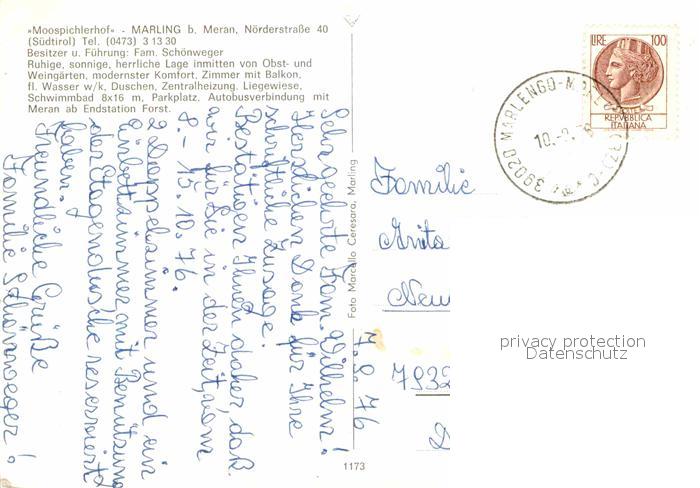 »Moospichlerhof« - MARLING b. Meran, Nörderstraße 40
(Südtirol) Tel. (0473) 3 13 30
Besitzer u. Führung: Fam. Schönweger
Ruhige, sonnige, herrliche Lage inmitten von Obst- und
Weingärten, modernster Komfort, Zimmer mit Balkon,
fl. Wasser w/k, Duschen, Zentralheizung. Liegewiese,
Schwimmbad 8x16 m, Parkplatz. Autobusverbindung mit
Meran ab Endstation Forst.
7.9.76
Sehr geehrte Fam. Wilhelm!
Herzlichen Dank für Ihre
schriftliche Zusage.
Bestätigen Ihnen daher, daß
wir für Sie in der Zeit, vom
8. - 15. 10. 76.
2 Doppelzimmer und ein
Einbettzimmer mit Benützung
der Etagendusche reserviert
haben.
Freundliche Grüße
Familie Schönweger!
Foto Marcello Ceresara, Marling
1173
LIRE 100
REPVBBLICA
ITALIANA
39020 MARLENGO-
10.
Familie
Anita
Neu
7932
D
privacy protection
Datenschutz